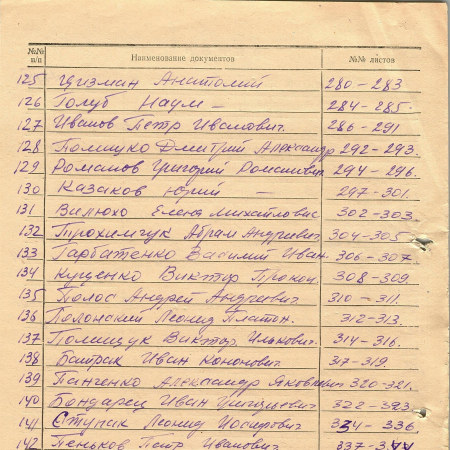 №№ п/п Наименование документов №№ листов
125 Цизман Анатолий 280-283
126 Голуб Наум - 284-285.
127 Иванов Петр Иванович. 286-291
128 Дмитрий Александр 292-293.
129 Романов Григорий Романович 294-296.
130 Казаков Юрий - 297-301.
131 Елена Михайловна 302-303.
132 Трохимчук Абрам Андреевич 304-305.
133 Гарбатенко Василий Иван. 306-307.
134 Куценко Виктор Прокоп. 308-309.
135 Полос Андрей Андреевич 310-311.
136 Полонский Леонид Платон. 312-313.
137 Полищук Виктор Илькович. 314-316.
138 Батрак Иван Кононович. 317-319.
139 Панченко Александр Яковлевич 320-321.
140 Бондарец Иван Григорьевич 322-323.
141 Ступак Леонид Иосифович 324-336.
142 Пеньков Петр Иванович 337-